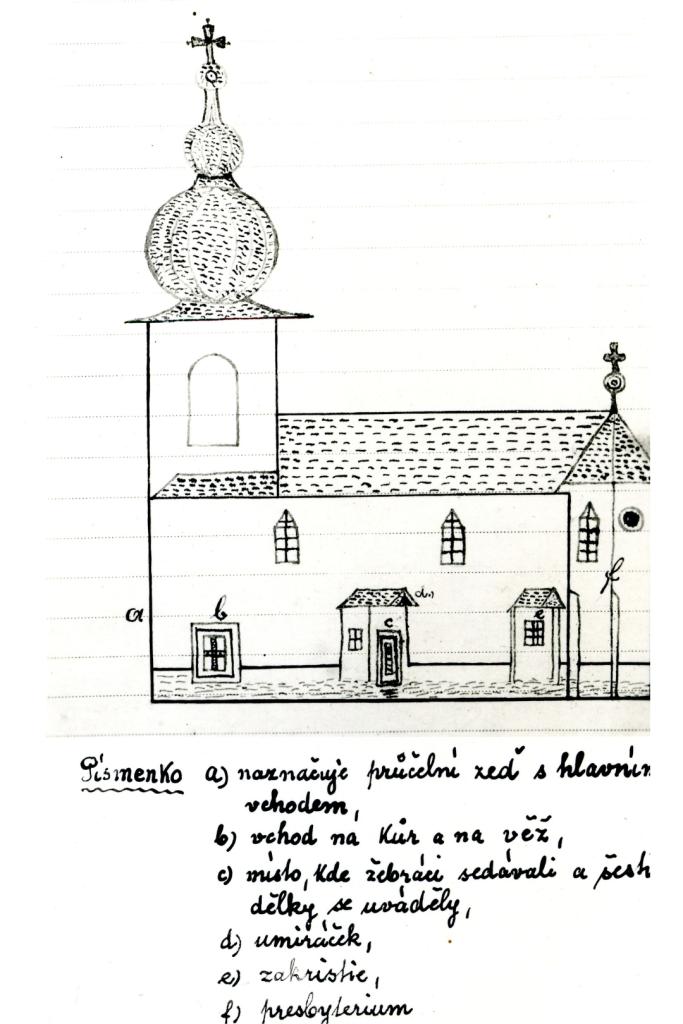 d.)
b
a
c
e
f
Písmenko a) naznačuje průčelní zeď s hlavním
vchodem,
b) vchod na kůr a na věž,
c) místo, kde žebráci sedávali a šest
dělky se uváděly,
d) umíráček,
e) zakristie,
f) presbyterium